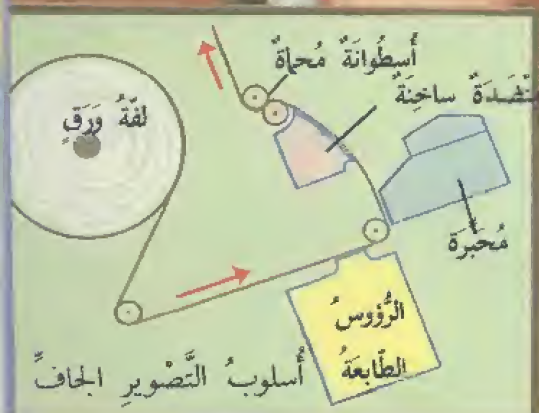 أُسطُوانَةٌ مُحماةٌ
مِنْضَدَةٌ ساخِنَةٌ
لفَّةُ وَرَقٍ
مُحَبِّرَة
الرُّؤوسُ
الطّابِعَةُ
أُسلوبُ التَّصْويرِ الجافِّ